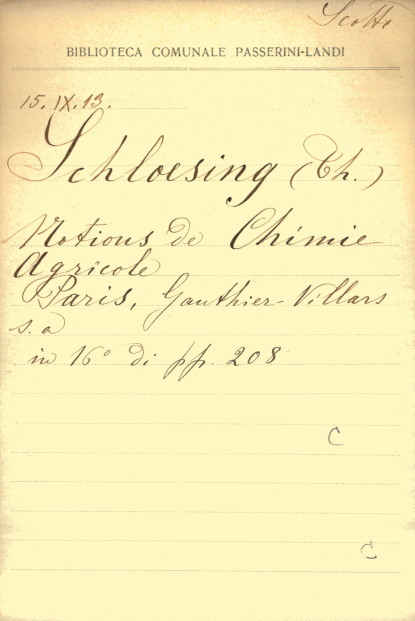 Scotti
BIBLIOTECA COMUNALE PASSERINI-LANDI
15.IX.13.
Schloesing (Th.)
Notions de Chimie
Agricole
Paris, Gauthier-Villars
s. a
in 16° di pp. 208
C
C